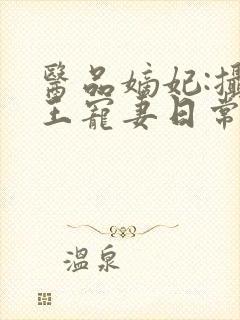 醫品嫡妃:攝
王寵妻日常
溫泉